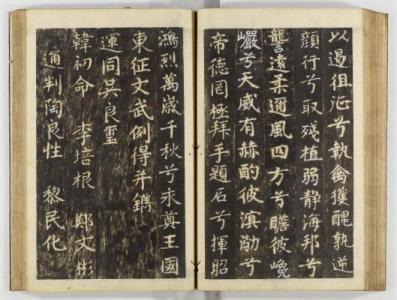 以遏徂征兮執禽獲醜孰逆
顏行兮取殘植弱静海邦兮
讋遠柔邇風四方兮瞻彼巉
巖兮天威有赫酌彼溟渤兮
帝德罔極拜手題石兮揮昭
鴻烈萬歲千秋兮永奠王國
東征文武例得并鐫
運同吳良璽
韓初命 李培根 鄭文彬
通判陶良性 黎民化